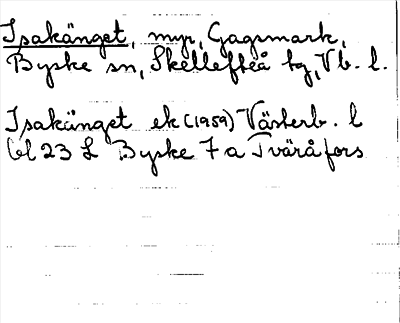 Isakänget, myr, Gagsmark,
Byske sn, Skellefteå tg, Vb. l.
Isakänget ek (1959) Västerb. l
bl 23 L Byske 7 a Tväråfors